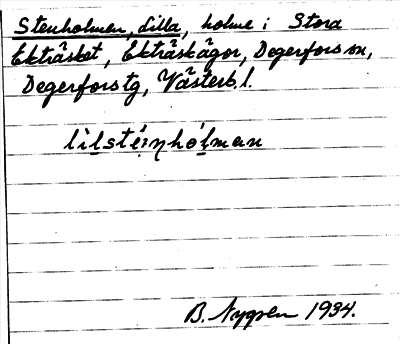 Stenholmen, Lilla, holme i Stora
Ekträsket, Ekträskägor, Degerfors sn,
Degerfors tg, Västerb. l.
lìlsté:nhólman
B. Nygren 1934.